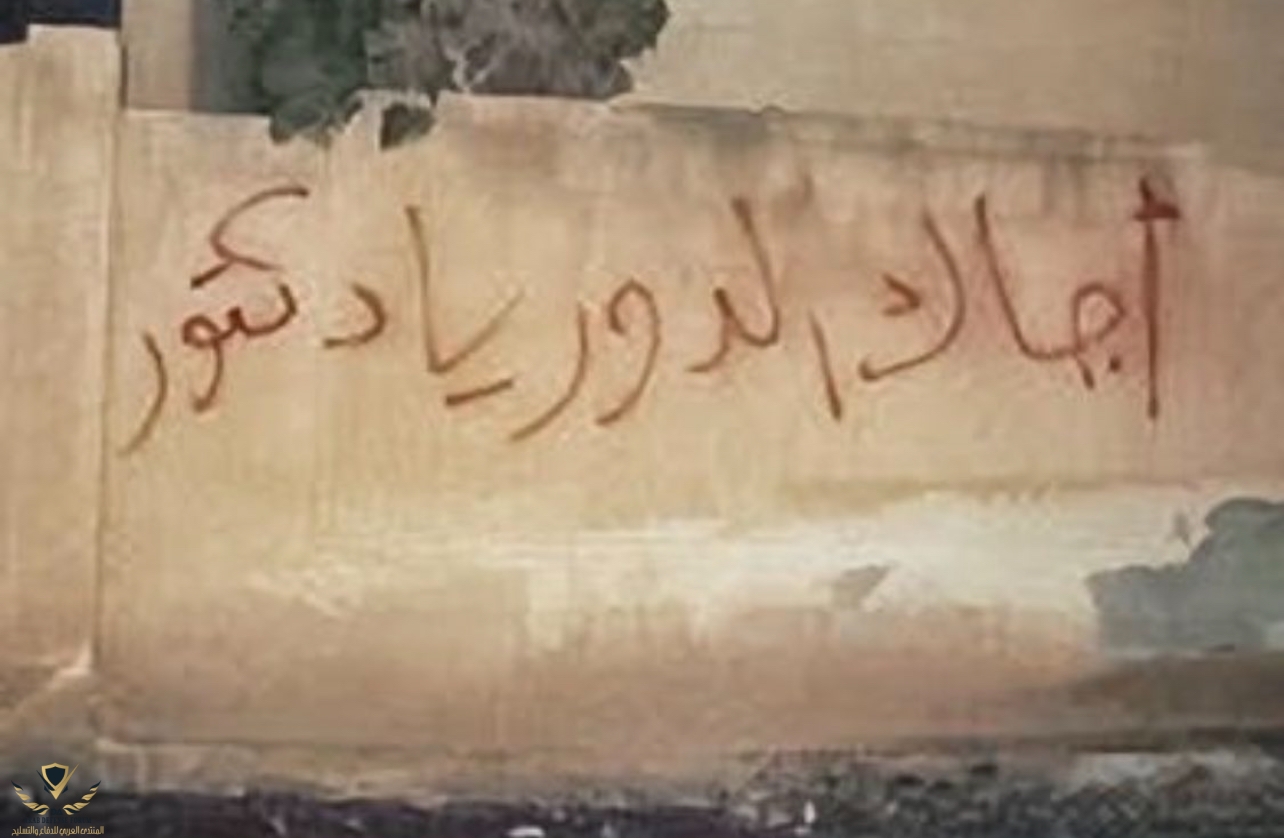 أجاك الدور يا دكتور
المنتدى العربي للدفاع والتسليح